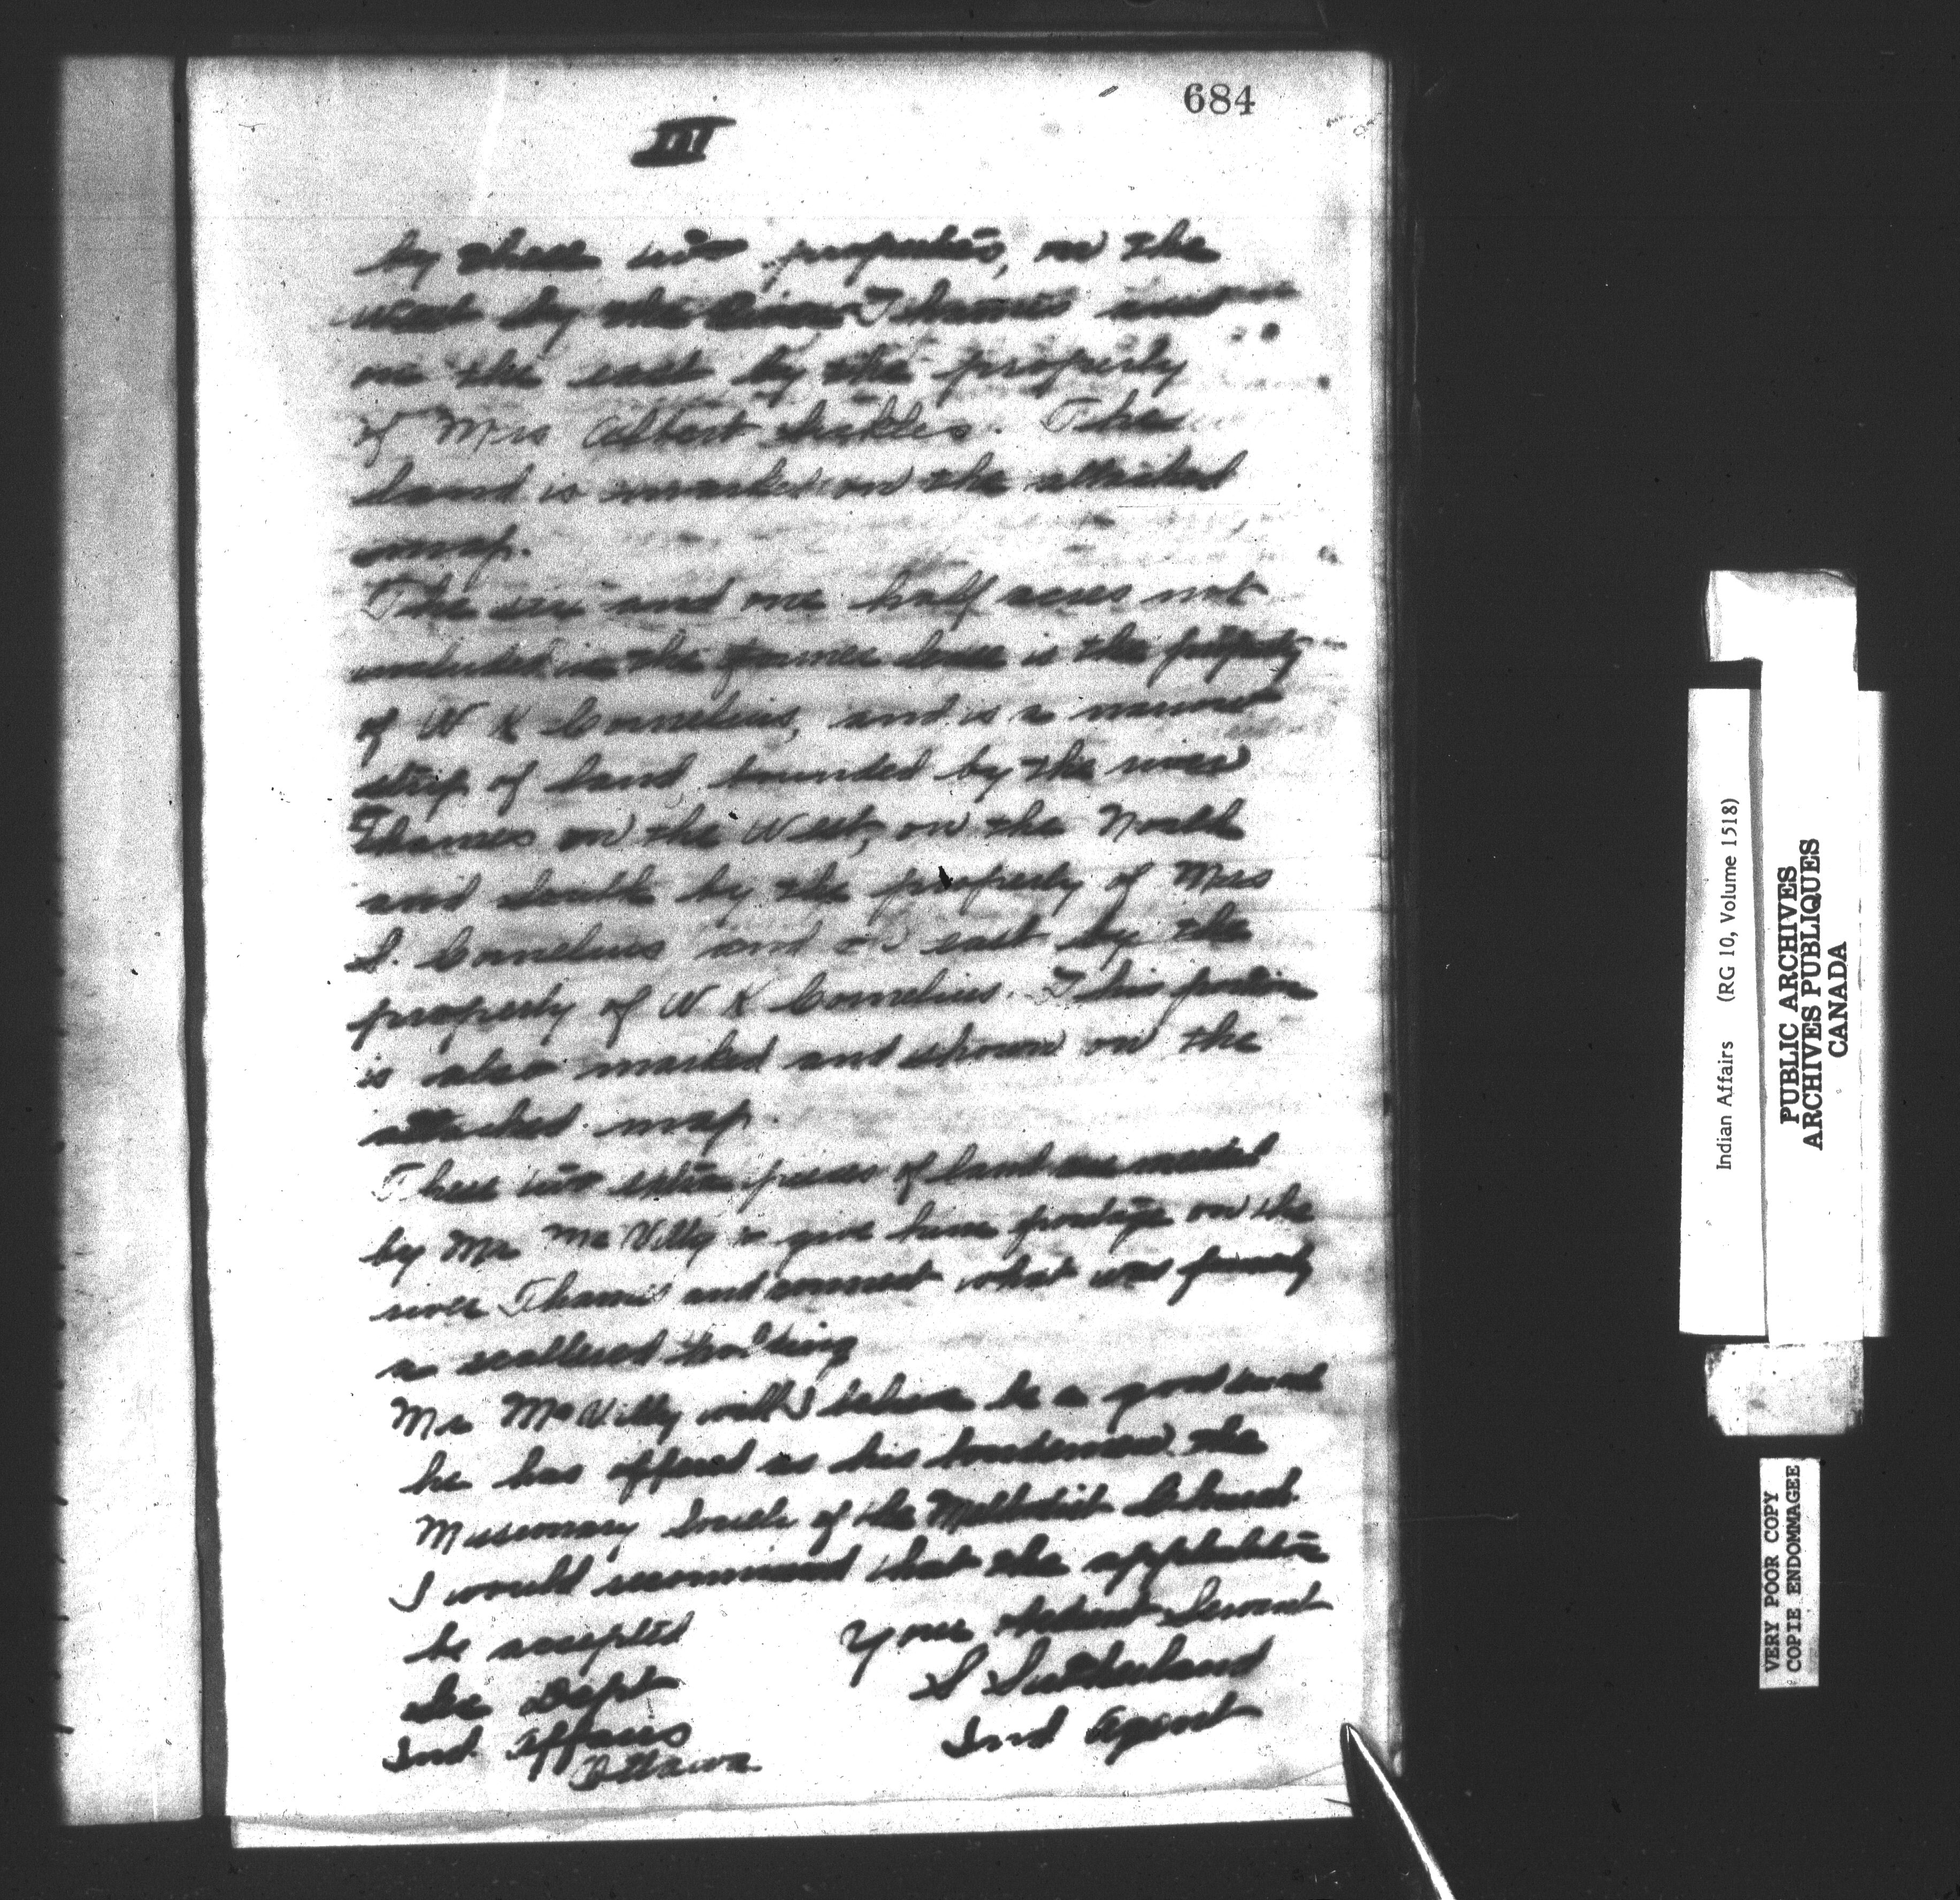 684
III
by these two properties, on the
west by the River Thames and
on the east by the property
of Mrs Albert Sickles. The
land is marked on the attached
map.
The six and one half acres not
included in the former lease is the property
of W K Cornelius, and is a narrow
strip of land bounded by the river
Thames on the West, on the North
and South by the property of Mrs
S. Cornelius and on east by the
property of W K Cornelius. This portion
is also marked and shown on the
attached map.
These two extra pieces of land are needed
by Mr McVitty to give him frontage on the
river Thames and connect what was formerly
a scattered holding
Mr McVitty will I believe be a good
he has offered as his bondsmen the
Missionary Society of the Methodist Church.
I would recommend that the application
be accepted
Your Obedient Servant
S Sutherland
Ind Agent
Sec Dept
Ind. Affairs
Ottawa
Indian Affairs (RG 10, Volume 1518)
PUBLIC ARCHIVES
ARCHIVES PUBLIQUES
CANADA
VERY POOR COPY
COPIE ENDOMMAGEE